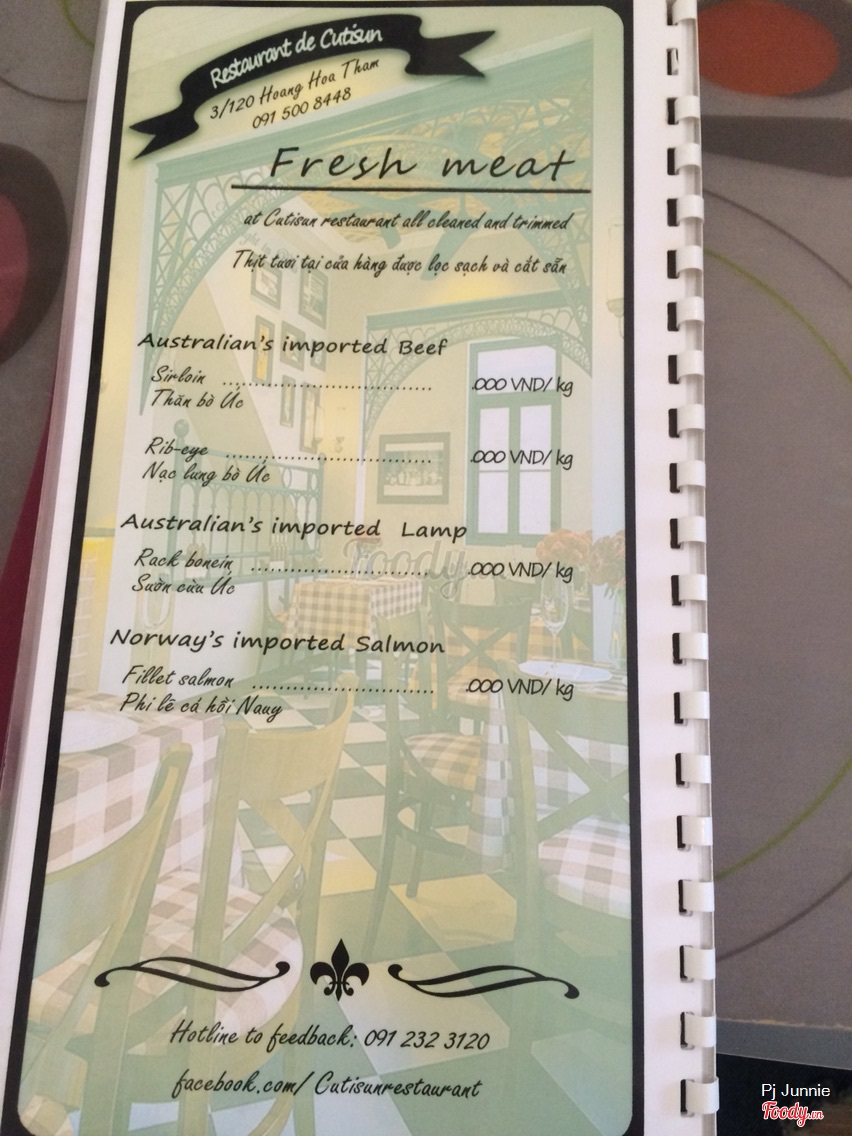 Restaurant de Cutisun
3/120 Hoang Hoa Tham
091 500 8448
Fresh meat
at Cutisun restaurant all cleaned and trimmed
Thịt tươi tại cửa hàng được lọc sạch và cắt sẵn
Australian's imported Beef
Sirloin .............................. .000 VND/ kg
Thăn bò Úc
Rib-eye .............................. .000 VND/ kg
Nạc lưng bò Úc
Australian's imported Lamp
Rack bonein .......................... .000 VND/ kg
Sườn cừu Úc
Foody
Norway's imported Salmon
Fillet salmon ........................... .000 VND/ kg
Phi lê cá hồi Nauy
Hotline to feedback: 091 232 3120
facebook.com/ Cutisunrestaurant
Pj Junnie
Foody.vn